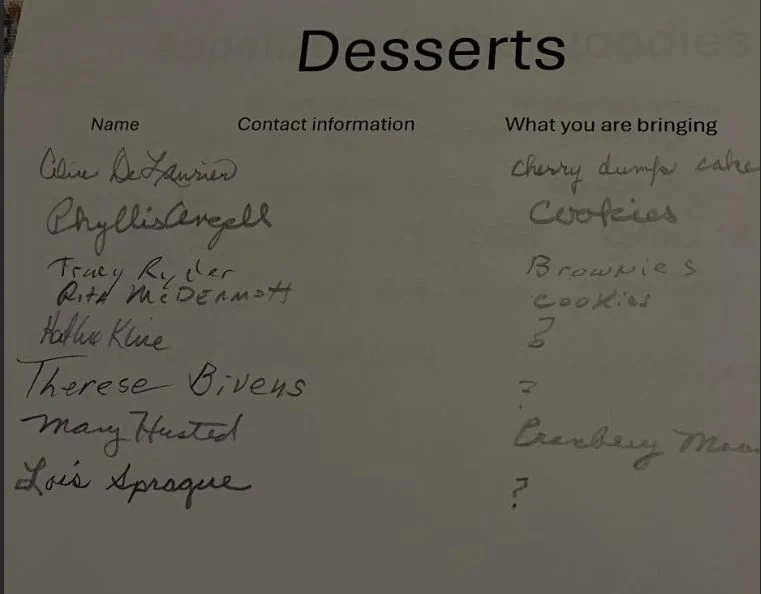 Desserts
Name Contact information What you are bringing
DeLaurier cherry dump cake
Phyllis Angell Cookies
Tracy Ryder Brownies
Rita McDermott cookies
Kline ?
Therese Bivens ?
Mary Husted Cranbery
Lois Sprague ?